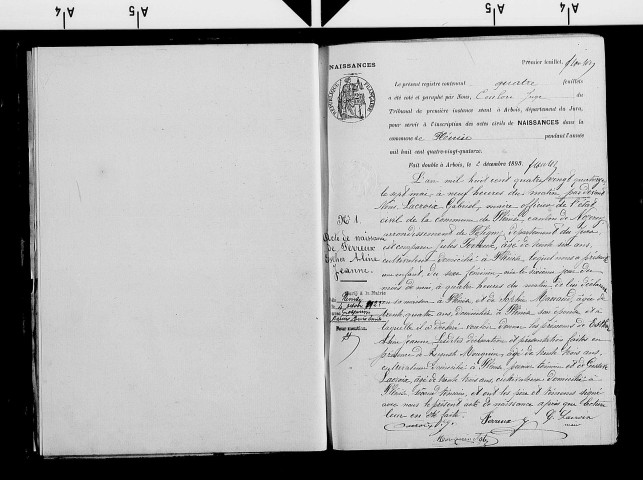 NAISSANCES
Premier feuillet.
RÉPUBLIQUE FRANÇAISE
Le présent registre contenant quatre feuillets
a été coté et paraphé par Nous, Juge du
Tribunal de première instance séant à Arbois, département du Jura,
pour servir à l'inscription des actes civils de NAISSANCES dans la
commune de Plénise pendant l'année
mil huit cent quatre-vingt-quatorze.
Fait double à Arbois, le 2 décembre 1893.
N° 1.
Acte de naissance
de Perreux
Jeanne.
L'an mil huit cent quatre vingt quatorze
le sept mai, à neuf heures du matin, par devant
Nous Lacroix Gabriel, maire officier de l'état
civil de la commune de Plénise, canton de Nozeroy
arrondissement de Poligny, département du Jura
est comparu Jules Perreux, âgé de trente six ans,
cultivateur domicilié à Plénise, lequel nous a présenté
un enfant du sexe féminin, née le sixième jour du
mois de mai, à quatre heures du matin, de lui déclarant
en sa maison à Plénise, et de Sophie âgée de
trente quatre ans, domiciliée à Plénise son épouse, et à
laquelle il a déclaré vouloir donner les prénoms de
Jeanne. Lesdites déclaration et présentation faites en
présence de âgé de trente trois ans,
cultivateur domicilié à Plénise premier témoin et de Gustave
Lacroix, âgé de trente trois ans, cultivateur domicilié à
Plénise second témoin, et ont les père et témoins signé
avec nous le présent acte de naissance après que lecture
leur en été faite.
Perreux J. G. Lacroix
maire
Pour mention.
A4
A5
A5
A4